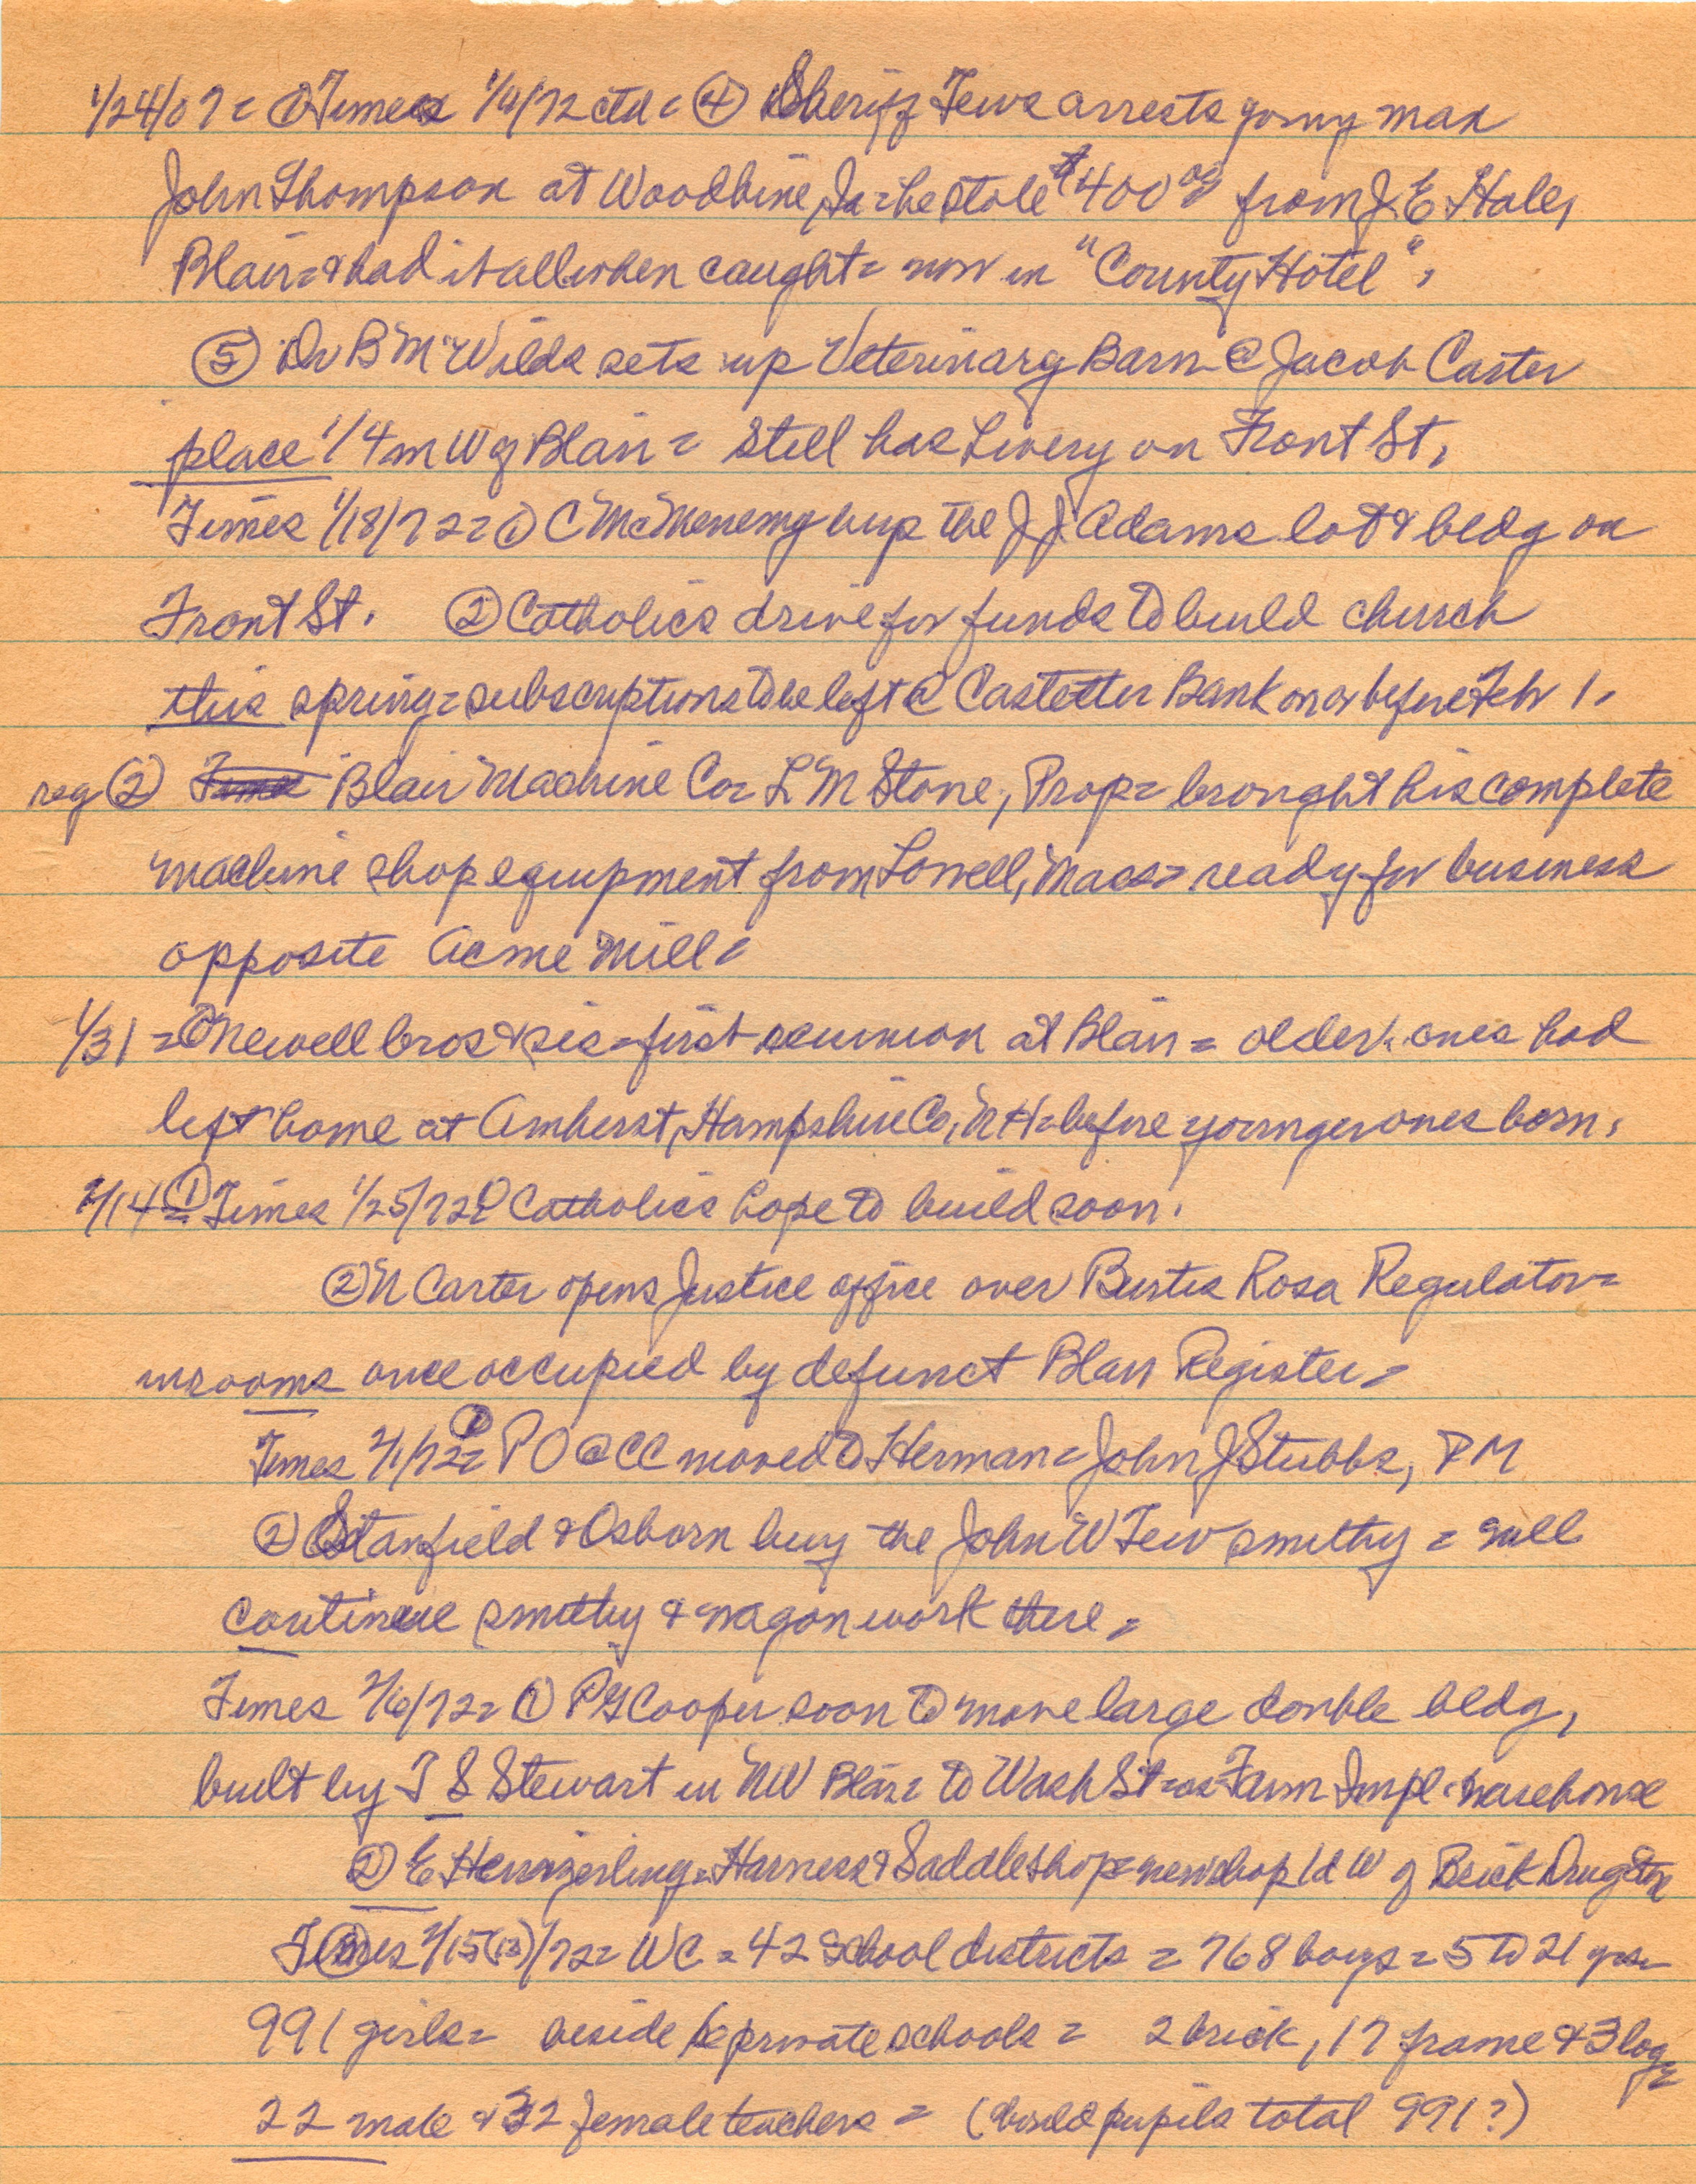 1/24/07 = ① Times 1/4/72 ctd = ④ Sheriff Tews arrests young man
John Thompson at Woodbine, Ia = he stole $400 00 from J. E. Hale,
Blair = & had it all when caught = now in "County Hotel".
⑤ Dr B M Wilds sets up Veterinary Barn @ Jacob Carter
place 1/4 m W of Blair = still has Livery on Front St.
Times 1/18/72 = ① C McMenemy buys the J J Adams lot & bldg on
Front St. ② Catholics drive for funds to build church
this spring = subscriptions to be left @ Castetter Bank on or before Feb 1.
reg ② Blair Machine Co = L M Stone, Prop = brought his complete
machine shop equipment from Lowell, Mass = ready for business
opposite Acme Mill =
1/31 = ① Newell bros & sis = first reunion at Blair = older ones had
left home at Amherst, Hampshire Co, NH = before younger ones born.
2/14 = ① Times 1/25/72 ① Catholics hope to build soon.
② N Carter opens Justice office over Burtis Rosa Regulator =
in rooms once occupied by defunct Blair Register =
Times 2/1/72 = ① PO @ CC moved to Herman = John J Stubbs, PM
② Stanfield & Osborn buy the John W Tew smithy = will
continue smithy & wagon work there =
Times 2/6/72 = ① P G Cooper soon to move large double bldg,
built by T S Stewart in NW Blair = to Wash St = as Farm Impl. warehouse
② E = Harness & Saddle shop = new shop 1d W of Brick Drug Store
Times 2/15(13)/72 = WC = 42 School districts = 768 boys = 5 to 21 yrs =
991 girls = beside 6 private schools = 2 brick, 17 frame & 3 log =
22 male & 32 female teachers = (would pupils total 991?)